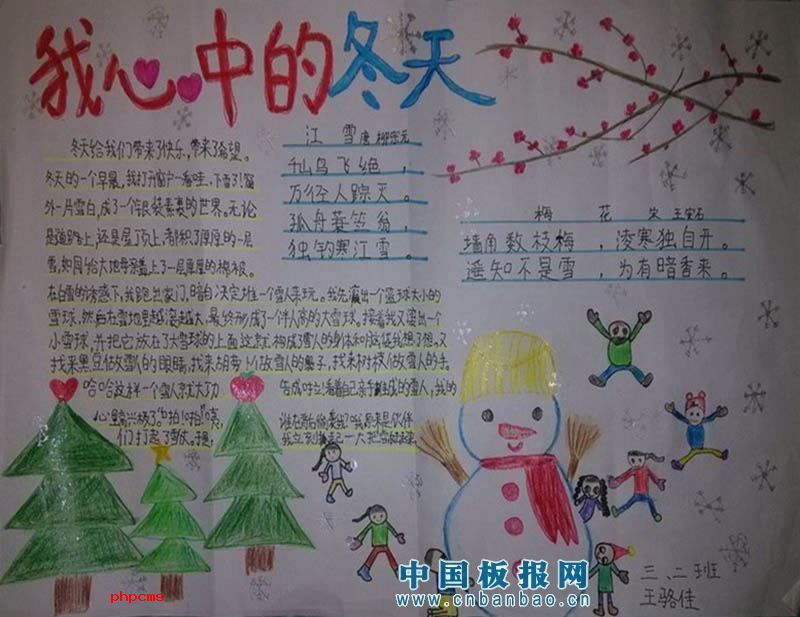 我心中的冬天
冬天给我们带来了快乐，带来了希望。
冬天的一个早晨，我打开窗户一看哇、下雪了！窗
外一片雪白，成了一个银装素裹的世界。无论
是道路上，还是屋顶上，都积了厚厚的一层
雪，如同给大地母亲盖上了一层厚厚的棉被。
在白雪的诱惑下，我跑出家门，暗自决定堆一个雪人来玩。我先滚出一个篮球大小的
雪球，然后在雪地里越滚越大，最终形成了一个半人高的大雪球。接着我又滚出一个
小雪球，并把它放在了大雪球的上面这就构成了雪人的身体和
找来黑豆做雪人的眼睛，找来胡萝卜做雪人的鼻子，找来树枝做雪人的手
哈哈这样一个雪人就大功
告成啦！看着自己亲手堆成的雪人，我的
心里高兴极了。
们打起了雪仗。
江 雪 唐 柳宗元
千山鸟飞绝，
万径人踪灭。
孤舟蓑笠翁，
独钓寒江雪。
梅 花 宋 王安石
墙角数枝梅，凌寒独自开。
遥知不是雪，为有暗香来。
三、二班
王骆佳
中国板报网
www.cnbanbao.cn
phpcms